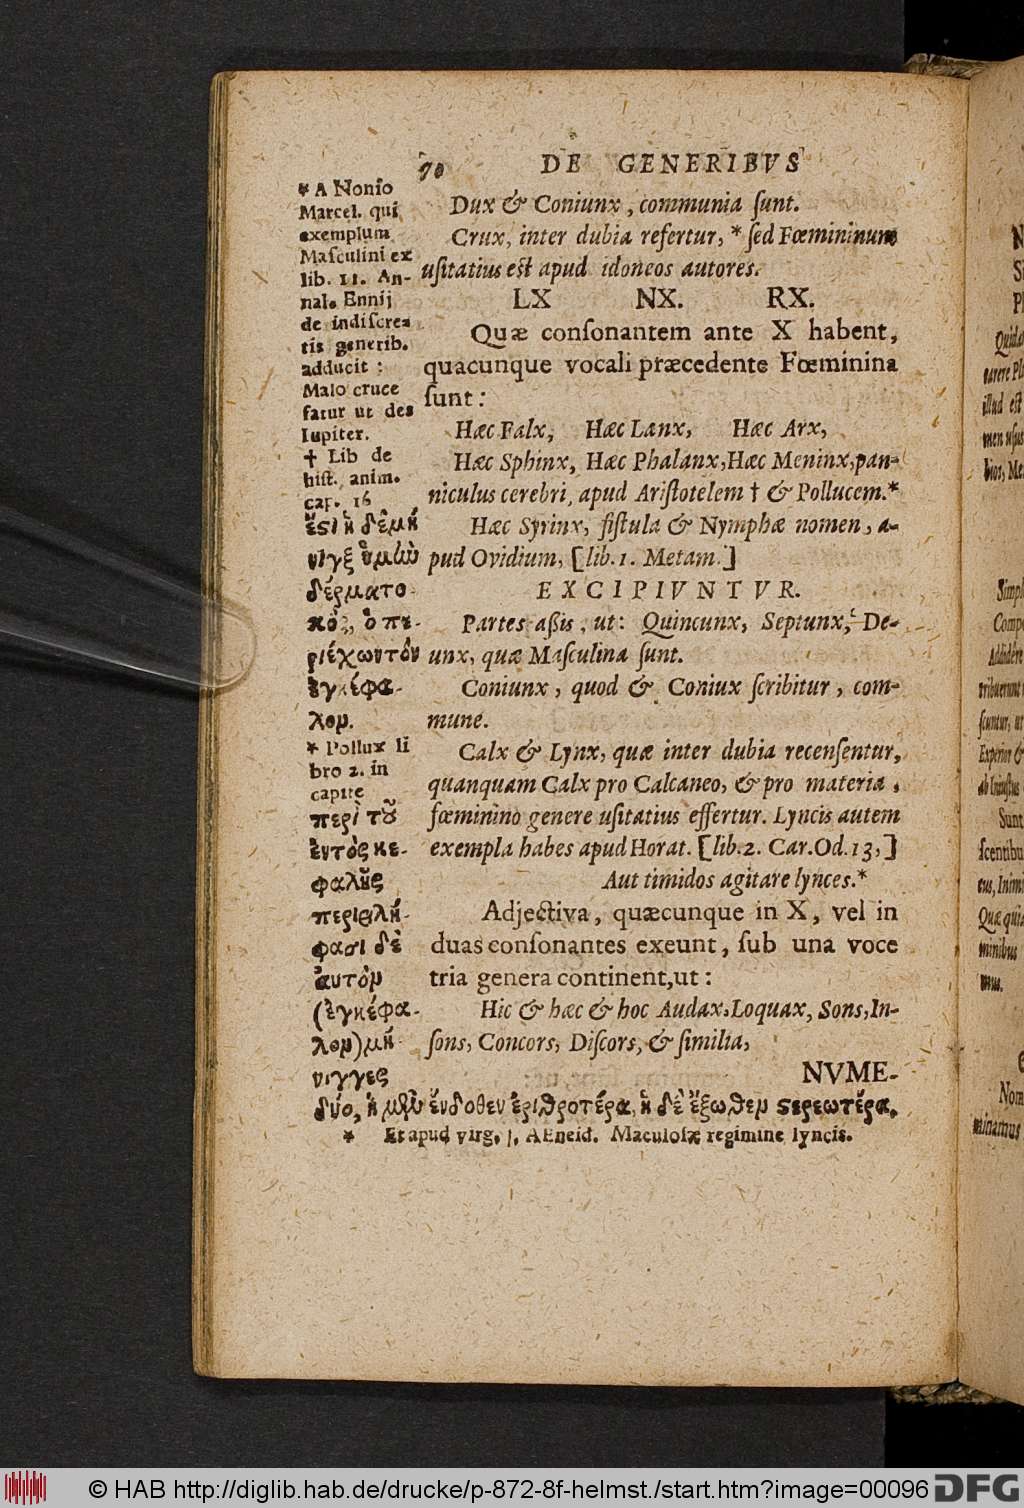 70 DE GENERIBVS
Dux & Coniunx, communia ſunt.
Crux, inter dubia refertur, * ſed Fœmininum
uſitatius eſt apud idoneos autores.
LX NX. RX.
Quæ conſonantem ante X habent,
quacunque vocali præcedente Fœminina
ſunt:
Hæc Falx, Hæc Lanx, Hæc Arx,
Hæc Sphinx, Hæc Phalanx, Hæc Meninx, pan-
niculus cerebri, apud Ariſtotelem † & Pollucem.*
Hæc Syrinx, fiſtula & Nymphæ nomen, a-
pud Ovidium, [lib. 1. Metam.]
EXCIPIVNTVR.
Partes aßis, ut: Quincunx, Septunx, De-
unx, quæ Maſculina ſunt.
Coniunx, quod & Coniux ſcribitur, com-
mune.
Calx & Lynx, quæ inter dubia recenſentur,
quanquam Calx pro Calcaneo, & pro materia,
fœminino genere uſitatius effertur. Lyncis autem
exempla habes apud Horat. [lib. 2. Car. Od. 13,]
Aut timidos agitare lynces.*
Adjectiva, quæcunque in X, vel in
duas conſonantes exeunt, ſub una voce
tria genera continent, ut:
Hic & hæc & hoc Audax, Loquax, Sons, In-
ſons, Concors, Diſcors, & ſimilia,
NVME-
* A Nonio
Marcel. qui
exemplum
Maſculini ex
lib. 11. An-
nal. Ennij
de indiſcre-
tis generib.
adducit:
Malo cruce
fatur ut des
Iupiter.
† Lib de
hiſt. anim.
cap. 16
ἔςι ἡ δὲ μή
νιγξ ὑμὼν
δέρματο
κὸς, ὁ πε-
ριέχων τὸν
ἐγκέφα-
λον.
* Pollux li
bro 2. in
capite
περὶ τοῦ
ἐντὸς κε-
φαλῆς
περιειλή-
φασι δὲ
ἀυτὸν
(ἐγκέφα-
λον) μή-
νιγγες
δύο, ἡ μὲν ἔνδοθεν ἐριθροτέρα, ἡ δὲ ἔξωθεν ςερεωτέρα.
* Et apud virg. j. AEneid. Maculoſæ regimine lyncis.
© HAB http://diglib.hab.de/drucke/p-872-8f-helmst./start.htm?image=00096
DFG